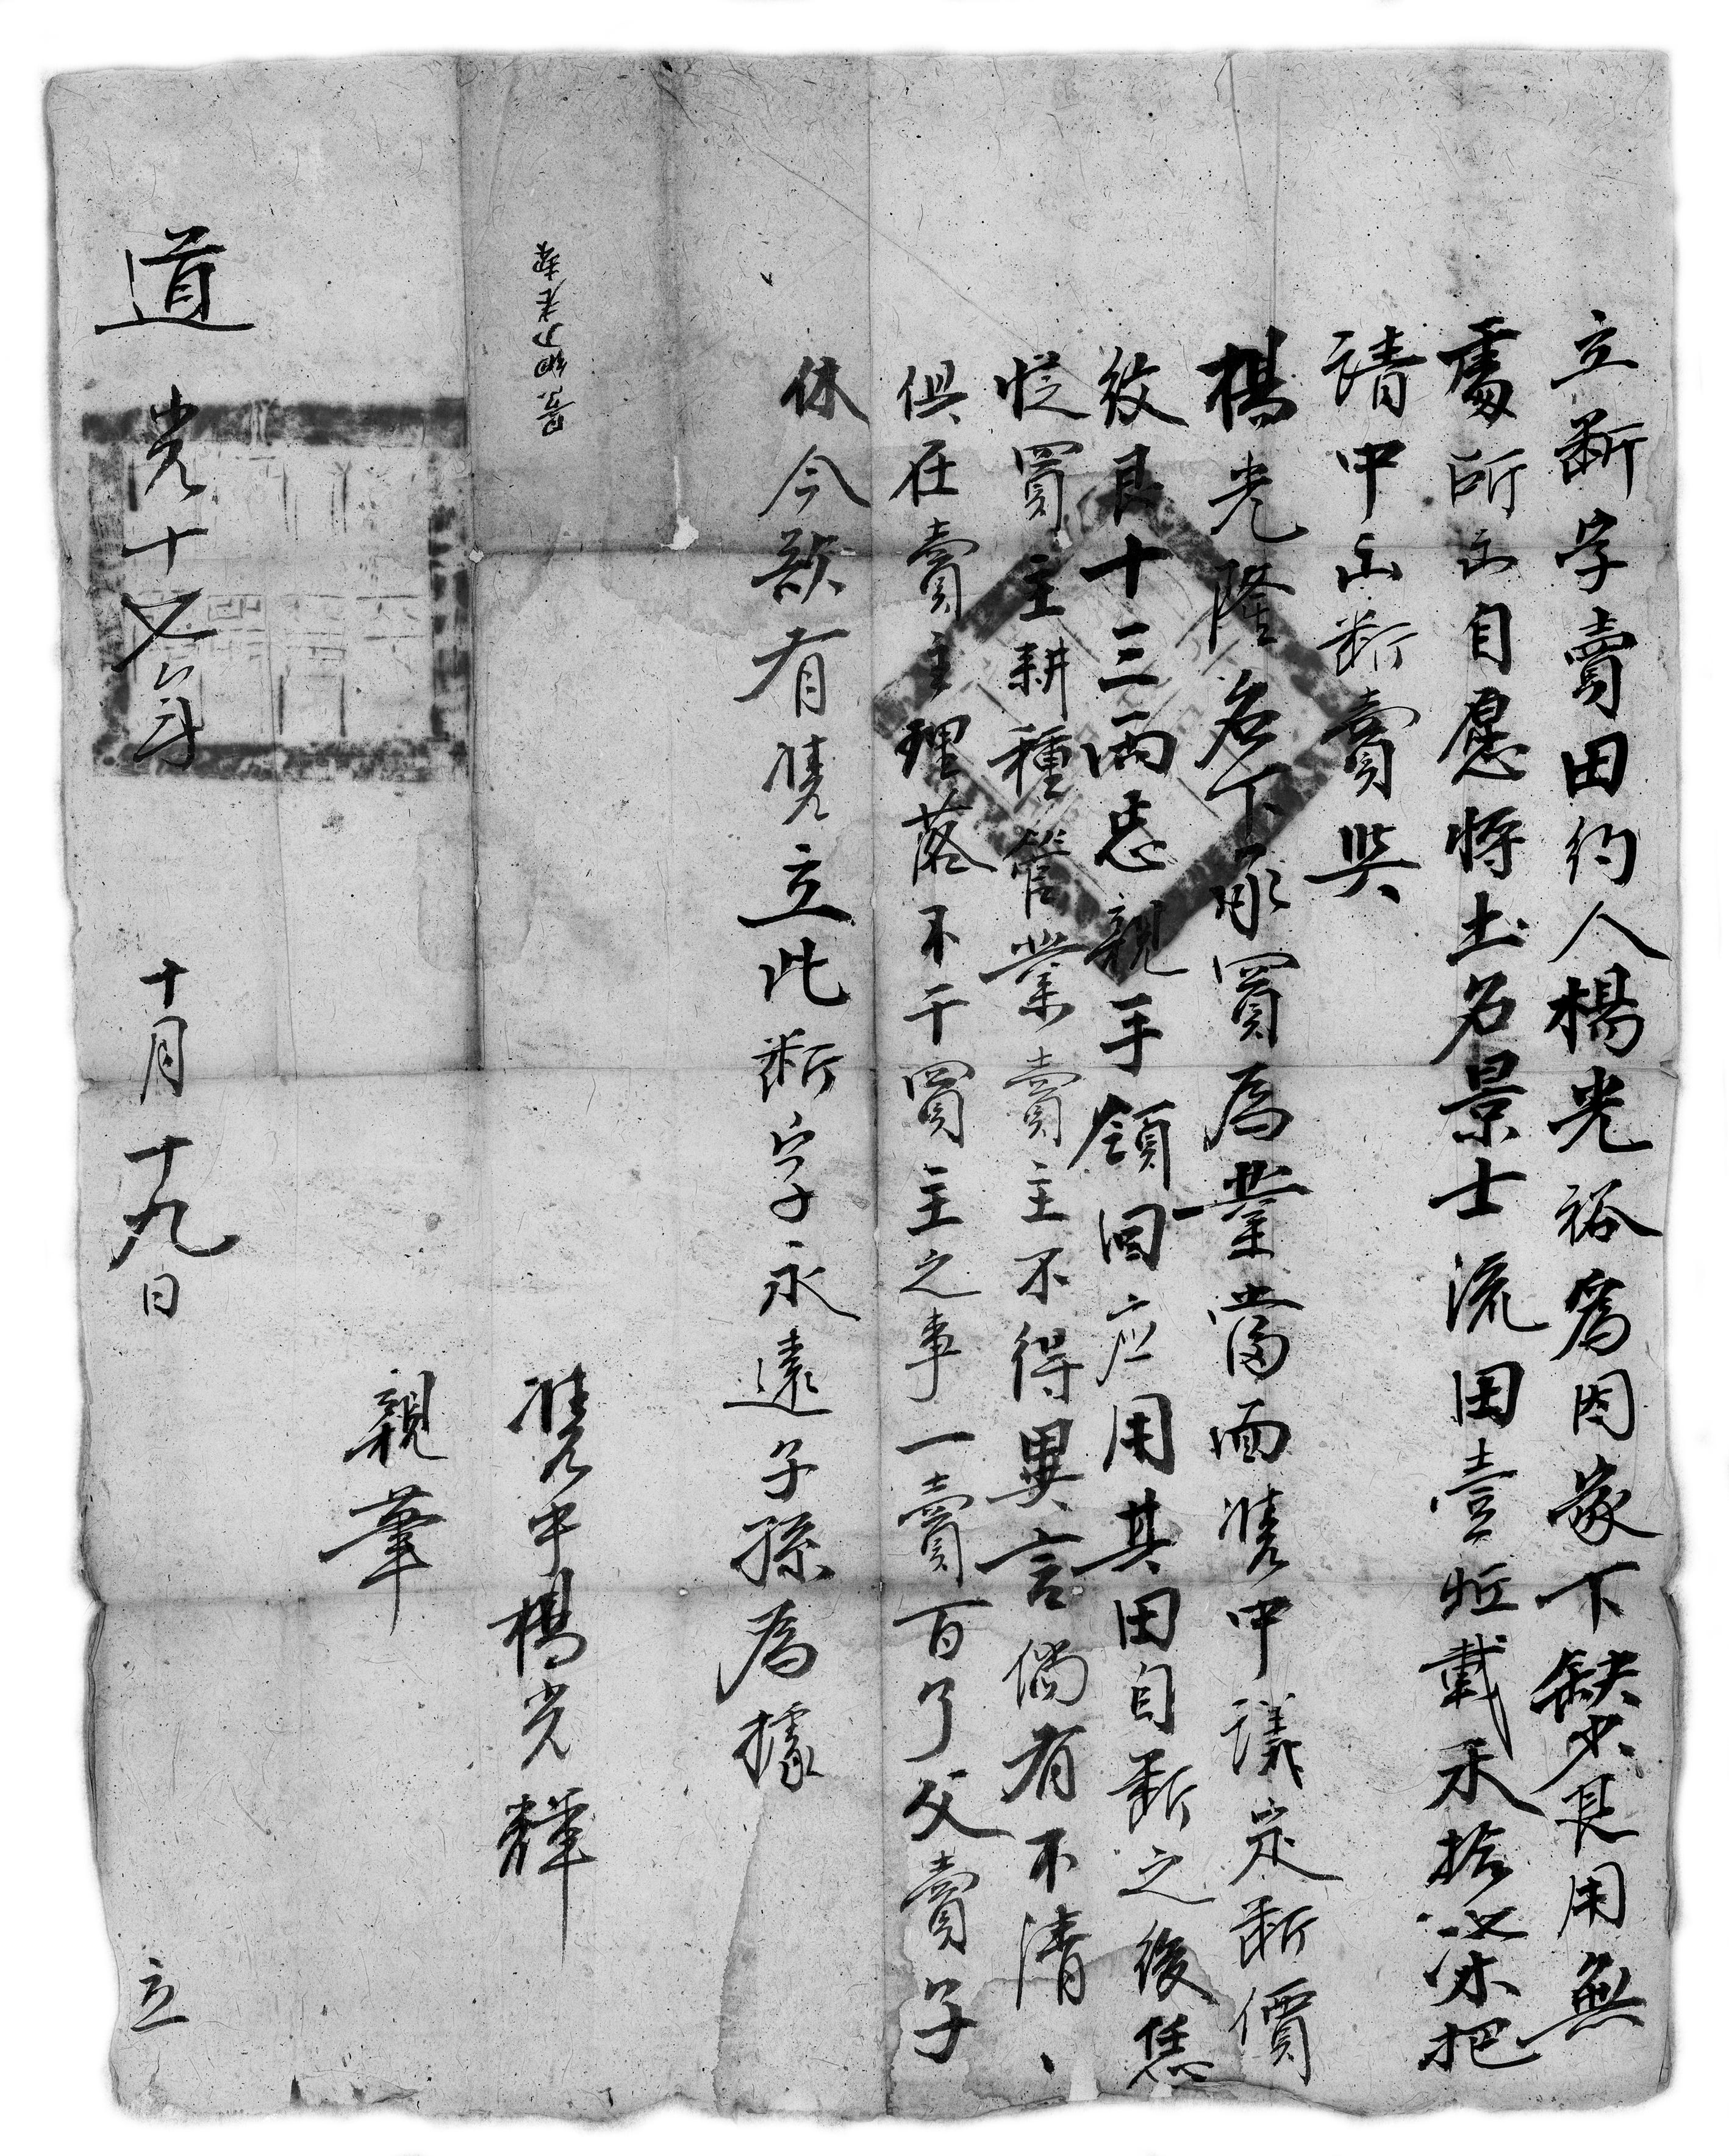 立断字賣田約人楊光裕為因家下缺少艮用無
處所出自愿将土名景士流田壹坵載禾拾 把
請中出断賣與
楊光隆名下承買為業當面凴中議定断價
紋艮十三両忠親手領回应用其田自断之後凭
從買主耕種管業賣主不得異言倘有不清
俱在賣主理落不干買主之事一賣百了父賣子
休今欲有凴立此断字永遠子孫為據
凴中楊光輝
親筆
道光十 年 十月十九日 立